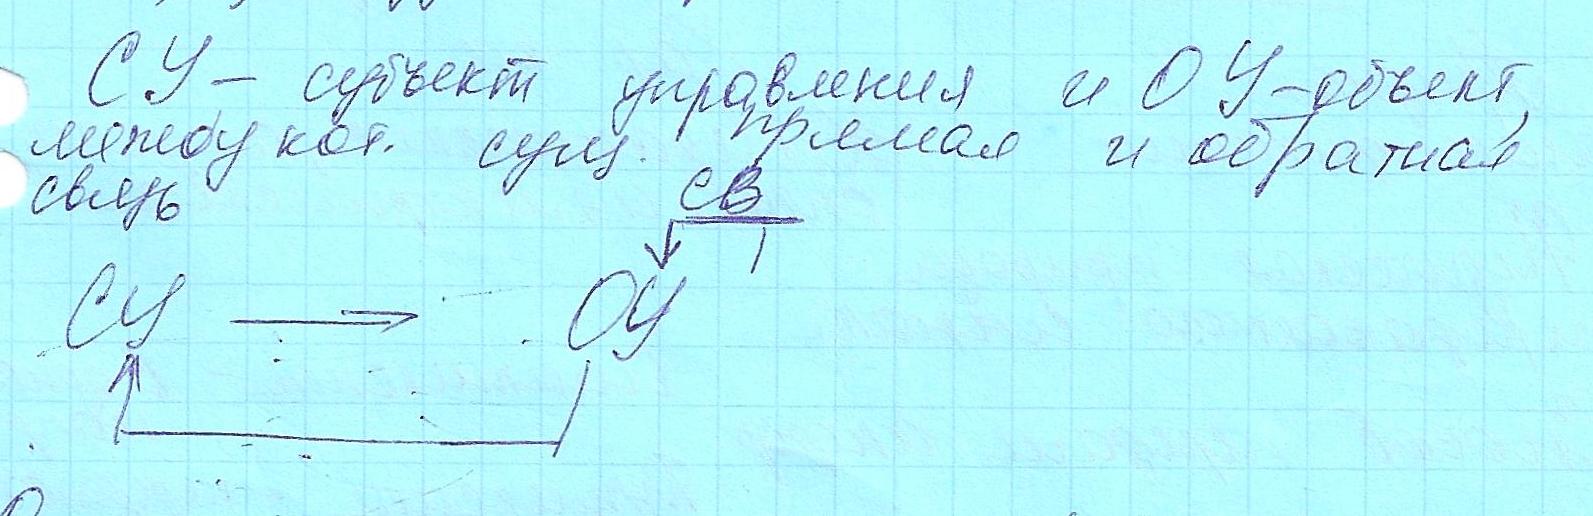 СУ – субъект управления и ОУ – объект,
между кот. сущ. прямая и обратная
связь
СВ
СУ ОУ